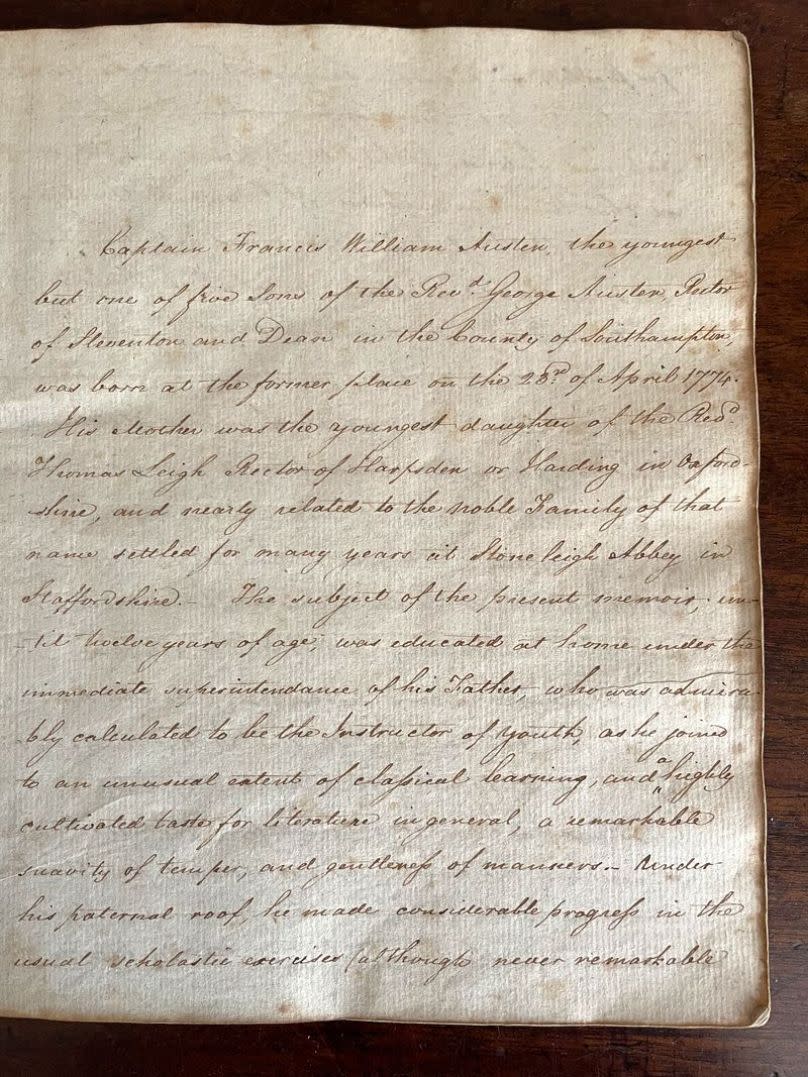 Captain Francis William Austen, the youngest
but one of five Sons of the Revd. George Austen, Rector
of Steventon and Dean in the County of Southampton,
was born at the former place on the 23rd. of April 1774.
His Mother was the youngest daughter of the Revd.
Thomas Leigh Rector of Harpsden or Harding in Oxford-
-shire, and nearly related to the noble Family of that
name settled for many years at Stoneleigh Abbey in
Staffordshire.- The subject of the present memoir, un-
-til twelve years of age, was educated at home under the
immediate superintendance of his Father, who was admira-
bly calculated to be the Instructor of youth, as he joined
to an unusual extent of classical learning, and a highly
cultivated taste for literature in general, a remarkable
suavity of temper, and gentleness of manners.- Under
his paternal roof, he made considerable progress in the
usual scholastic exercises (although never remarkable